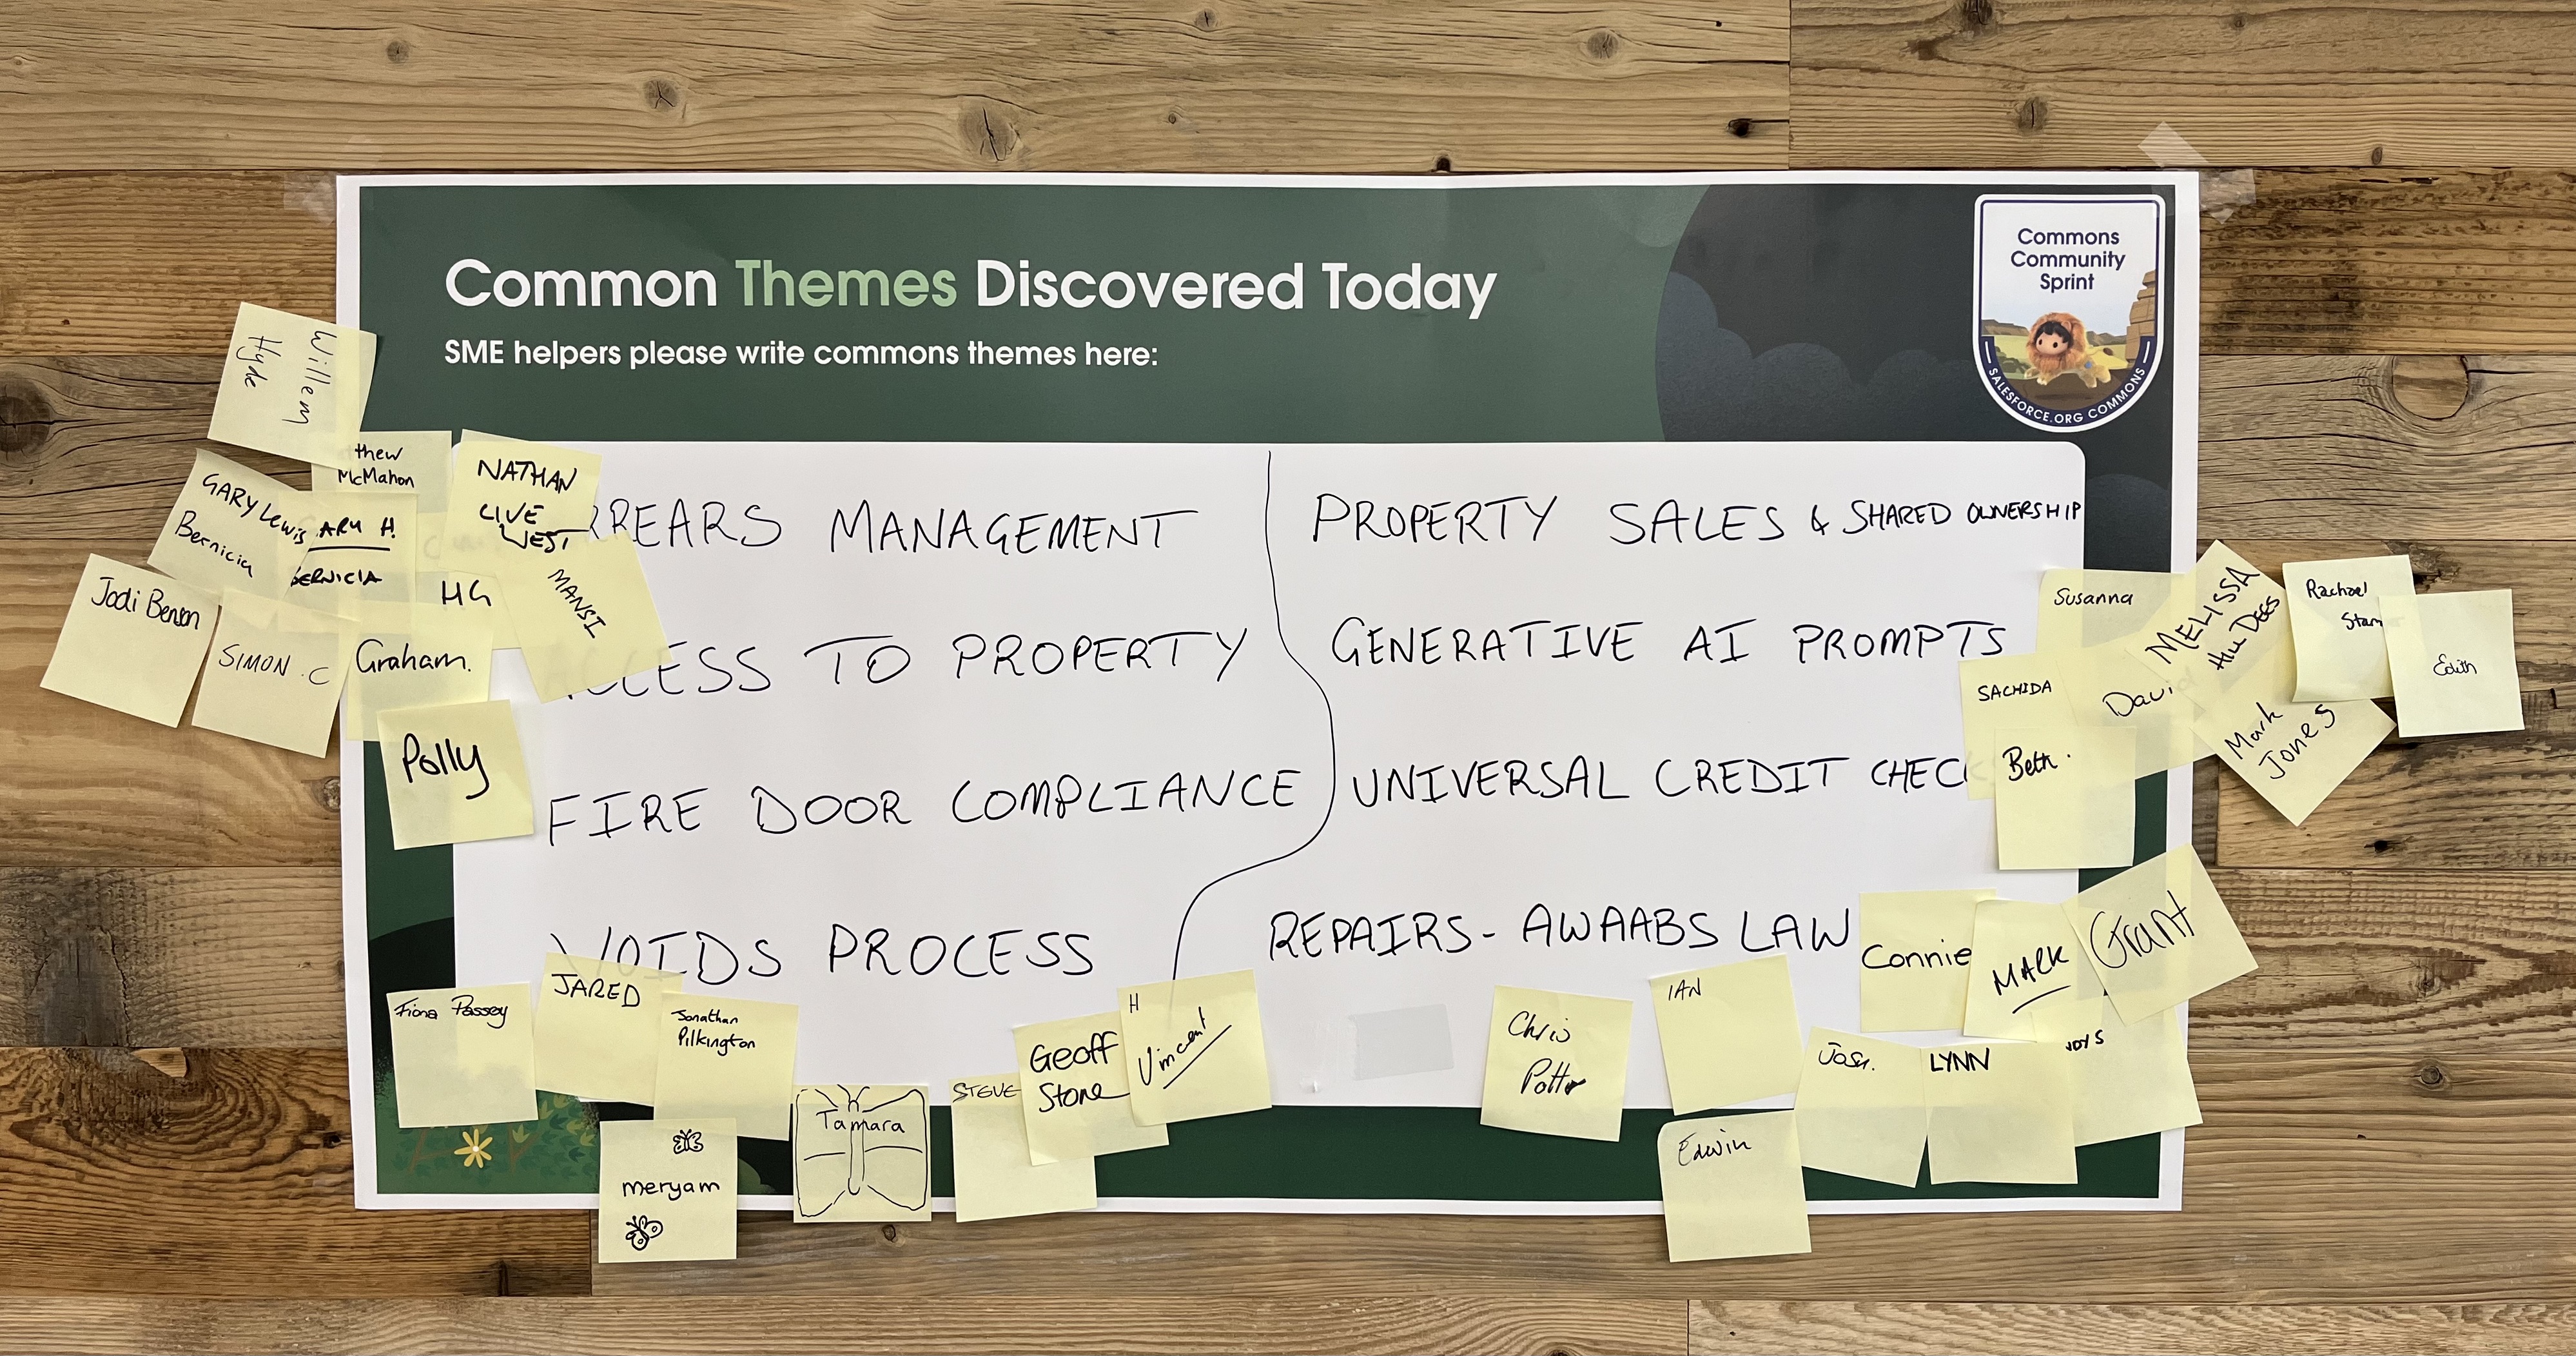 Common Themes Discovered Today
SME helpers please write commons themes here:
Commons
Community
Sprint
SALESFORCE.ORG COMMONS
RREARS MANAGEMENT
ACCESS TO PROPERTY
FIRE DOOR COMPLIANCE
VOIDS PROCESS
PROPERTY SALES & SHARED OWNERSHIP
GENERATIVE AI PROMPTS
UNIVERSAL CREDIT CHEC
REPAIRS - AWAABS LAW
Willem
Hyde
thew
McMahon
NATHAN
LIVE
WEST
GARY Lewis
Bernicia
ARY H.
BERNICIA
HG
MANSI
Jodi Benson
SIMON . C
Graham.
Polly
Fiona Passey
JARED
Jonathan
Pilkington
meryam
Tamara
STEVE
Geoff
Stone
H
Vincent
Susanna
MELISSA
Rachael
Stam
Edith
SACHIDA
David
Mark
Jones
Beth.
Connie
MARK
Grant
Chris
Potter
IAN
Josh.
LYNN
DY S
Edwin